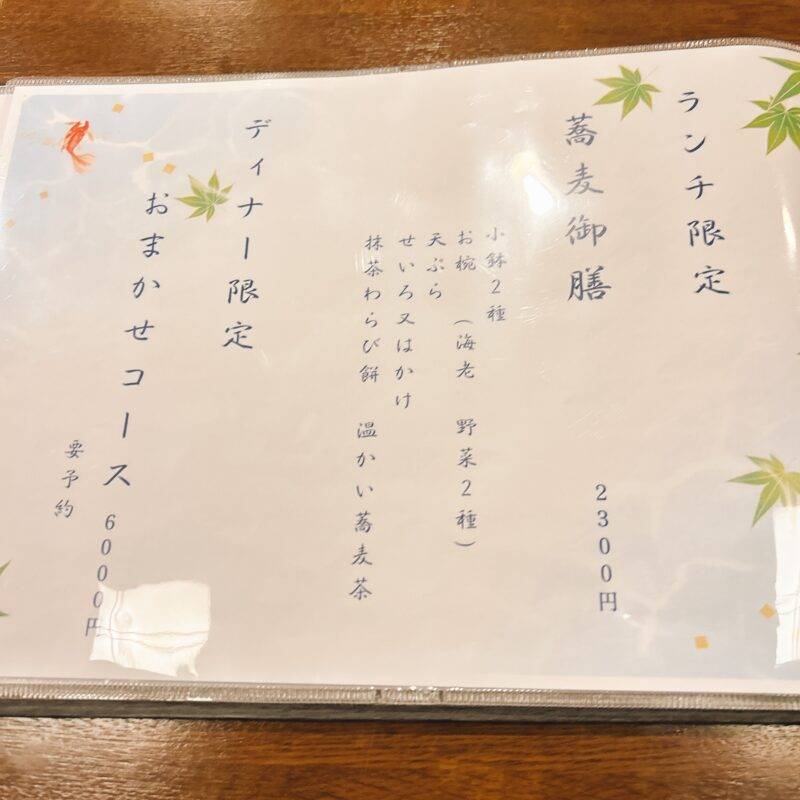 ランチ限定
蕎麦御膳 2300円
小鉢2種
お椀 (海老 野菜2種)
天ぷら
せいろ又はかけ
抹茶わらび餅 温かい蕎麦茶
ディナー限定
おまかせコース 6000円
要予約